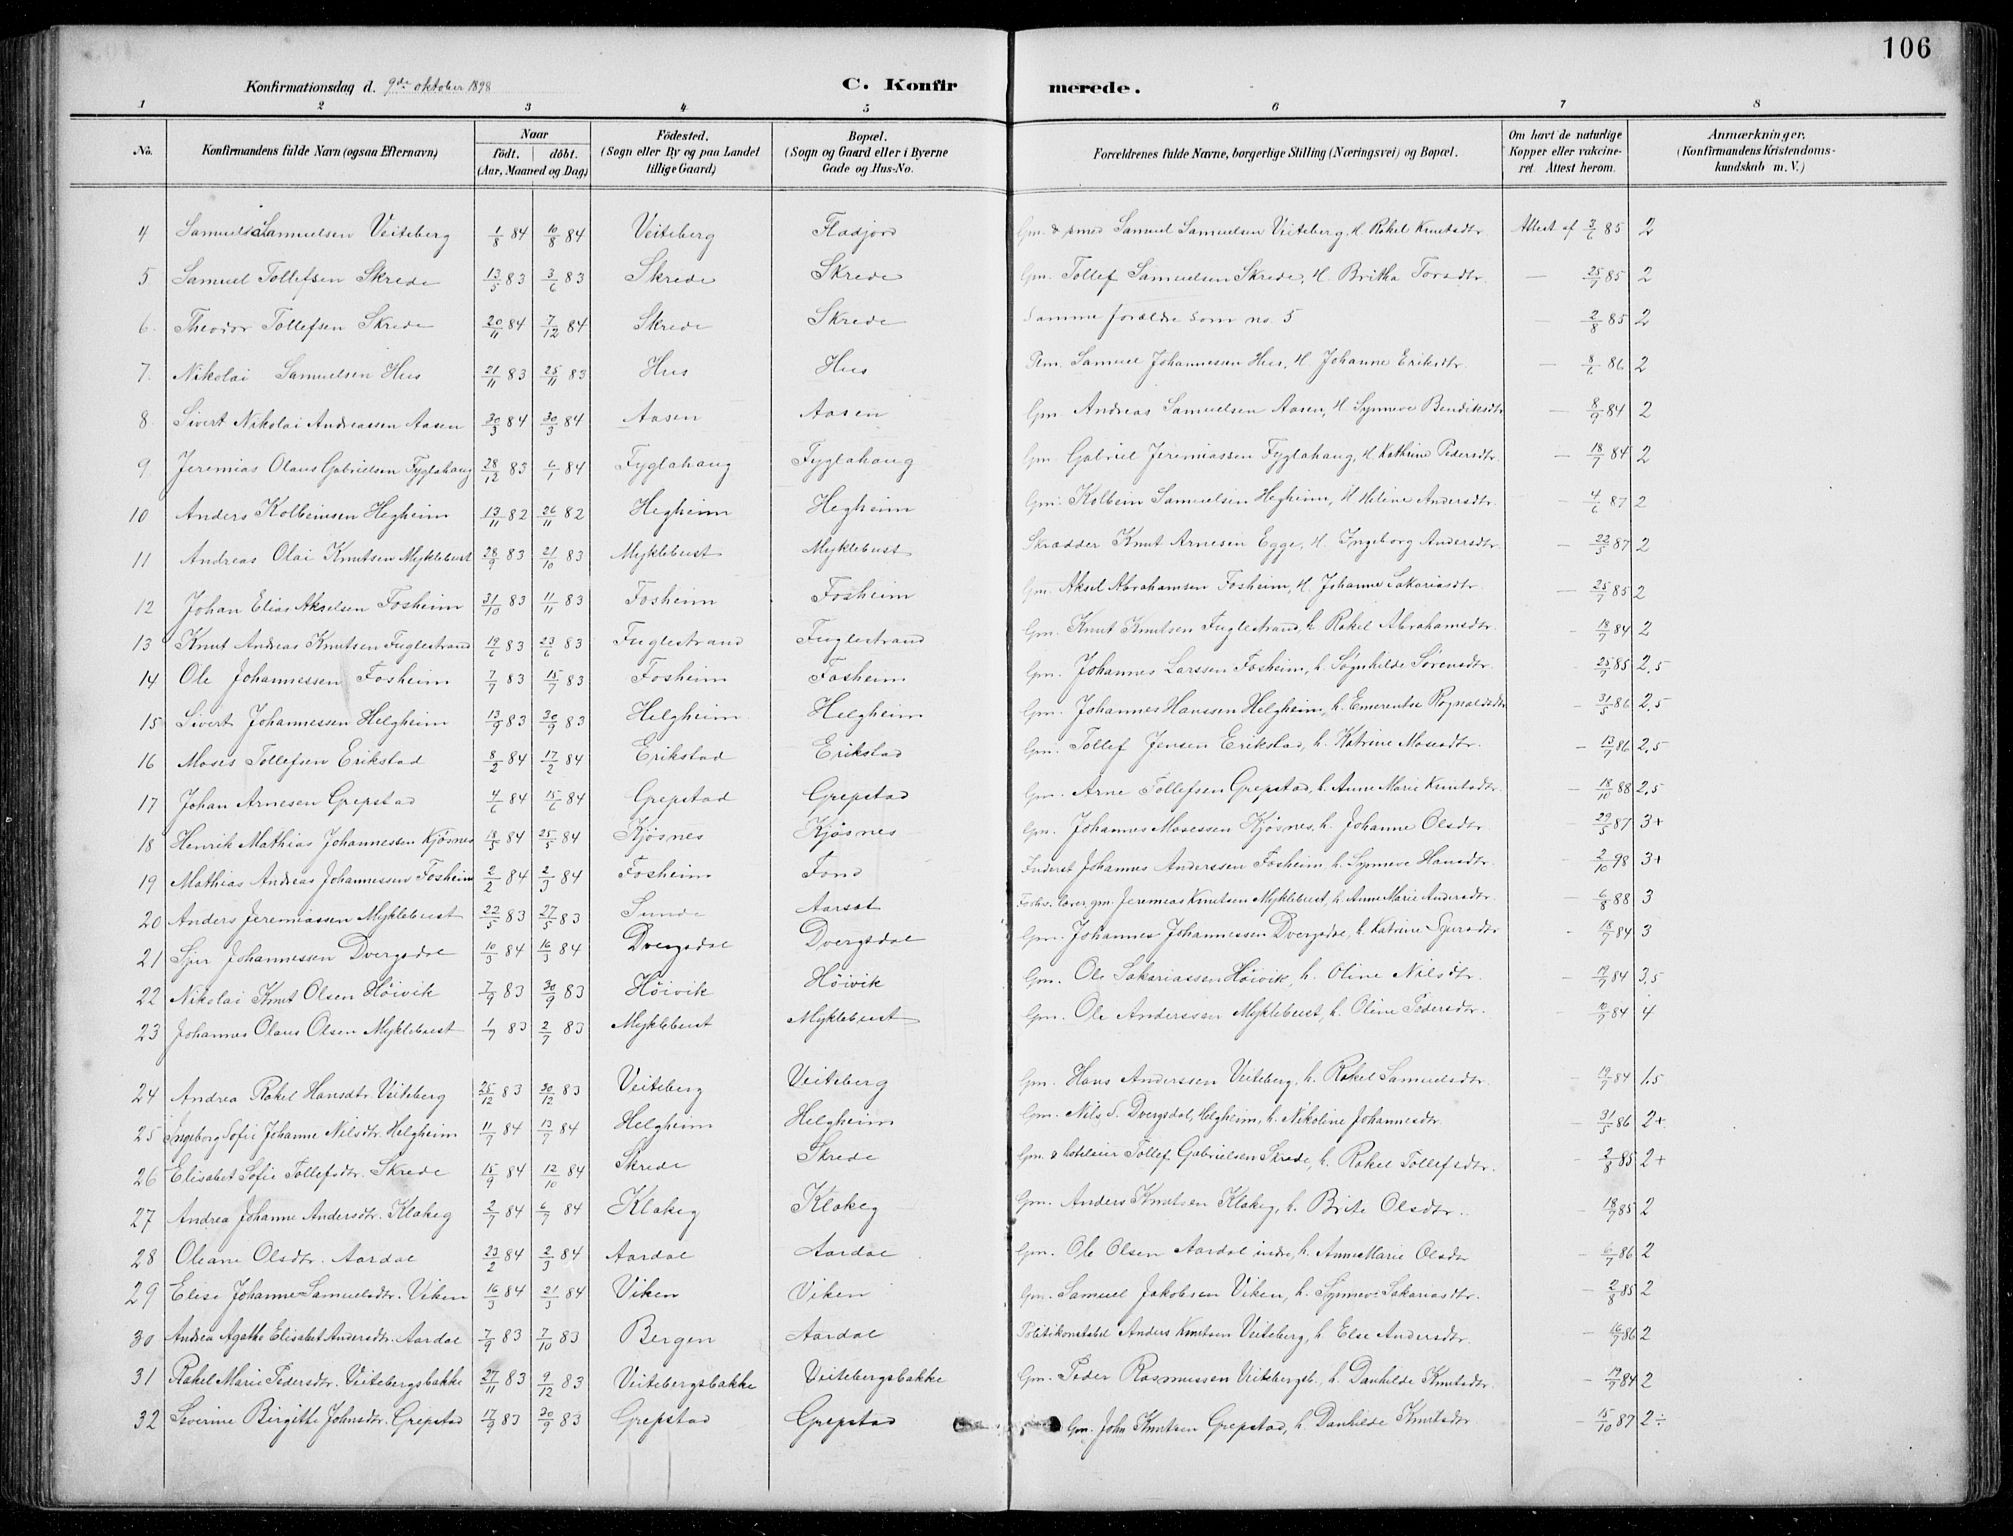 106
Konfirmationsdag d. 9de oktober 1898 C. Konfir merede.
1 2 3 4 5 6 7 8
No. Konfirmandens fulde Navn (ogsaa Efternavn) Naar født. døbt. (Aar, Maaned og Dag) Fødested. (Sogn eller By og paa Landet tillige Gaard) Bopæl. (Sogn og Gaard eller i Byerne Gade og Hus-No. Forældrenes fulde Navne, borgerlige Stilling (Næringsvei) og Bopæl. Om havt de naturlige Kopper eller vakcineret. Attest herom. Anmærkninger. (Konfirmandens Kristendomskundskab m. V.)
4 Samuel Samuelsen Veiteberg 1/8 84 10/8 84 Veiteberg Fladjord Gm. & smed Samuel Samuelsen Veiteberg, H. Rakel Knutsdtr Attest af 3/6 85 2
5 Samuel Tollefsen Skrede 13/5 83 3/6 83 Skrede Skrede Gm. Tollef Samuelsen Skrede, H. Britha Torsdtr. — 25/7 85 2
6. Theodor Tollefsen Skrede 20/11 84 7/12 84 Skrede Skrede Samme foreldre som no. 5 — 2/8 85 2
7. Nikolai Samuelsen Hus 21/11 83 25/11 83 Hus Hus Pm. Samuel Johannessen Hus, H Johanne Eriksdtr. — 8/6 86 2
8 Sivert Nikolai Andreassen Aasen 30/3 84 30/3 84 Aasen Aasen Gm. Andreas Samuelsen Aasen, H. Synneve Bendiksdtr — 8/9 84 2
9. Jeremias Olaus Gabrielsen Fyglahaug 28/12 83 6/1 84 Fyglahaug Fyglahaug Gm. Gabriel Jeremiassen Fyglahaug, H. Kathrine Pedersdtr. — 18/7 84 2
10 Anders Kolbeinsen Hegheim 13/11 82 26/11 82 Hegheim Hegheim Gm. Kolbein Samuelsen Hegheim, H Heline Andersdtr — 4/6 87 2
11 Andreas Olai Knutsen Myklebust 28/9 83 21/10 83 Myklebust Myklebust Skrædder Knut Arnesen Egge, H. Ingeborg Andersdtr. — 22/5 87 2
12 Johan Elias Akselsen Fosheim 31/10 83 11/11 83 Fosheim Fosheim Gm. Aksel Abrahamsen Fosheim, H. Johanne Sakariasdtr — 25/7 85 2
13 Knut Andreas Knutsen Fuglestrand 19/6 83 23/6 83 Fuglestrand Fuglestrand Gm. Knut Knutsen Fuglestrand, h. Rakel Abrahamsdtr. — 18/7 84 2
14 Ole Johannessen Fosheim 7/7 83 15/7 83 Fosheim Fosheim Gm. Johannes Larssen Fosheim, h. Søgnhilde Sørensdtr. — 25/7 85 2,5
15 Sivert Johannessen Helgheim 13/9 83 30/9 83 Helgheim Helgheim Gm. Johannes Hanssen Helgheim, h. Emerentse Rognaldsdtr — 31/5 86 2,5
16 Moses Tollefsen Erikstad 8/2 84 17/2 84 Erikstad Erikstad Gm. Tollef Jensen Erikstad, h. Katrine Mosesdtr. — 13/7 86 2,5
17 Johan Arnesen Grepstad 4/6 84 15/6 84 Grepstad Grepstad Gm. Arne Tollefsen Grepstad, h. Anne Marie Knutsdtr. — 18/10 88 2,5
18 Henrik Mathias Johannessen Kjøsnes 18/5 84 25/5 84 Kjøsnes Kjøsnes Gm. Johannes Mosessen Kjøsnes, h. Johanne Olsdtr. — 29/5 87 3+
19 Mathias Andreas Johannessen Fosheim 2/2 84 2/3 84 Fosheim Fond Inderst Johannes Anderssen Fosheim h. Synneve Hansdtr. — 2/10 98 3+
20 Anders Jeremiassen Myklebust 22/5 83 27/5 83 Sunde Aarsæt gm. Jeremias Knutsen Myklebust, h. Anne Marie Andersdtr. — 6/8 88 3
21 Sjur Johannessen Dvergsdal 10/3 84 16/3 84 Dvergsdal Dvergsdal Gm. Johannes Johannessen Dvergsdal, h. Katrine Sjursdtr — 18/7 84 3
22 Nikolai Knut Olsen Høivik 7/9 83 30/9 83 Høivik Høivik Gm. Ole Sakariassen Høivik, h. Oline Nilsdtr. — 19/7 84 3,5
23 Johannes Olaus Olsen Myklebust 1/7 83 2/7 83 Myklebust Myklebust Gm. Ole Anderssen Myklebust, h. Oline Pedersdtr. — 19/7 84 4
24 Andrea Rakel Hansdtr. Veiteberg 25/12 83 30/12 83 Veiteberg Veiteberg Gm. Hans Anderssen Veiteberg, h. Rakel Samuelsdtr. — 19/7 84 1,5
25 Ingeborg Sofie Johanne Nilsdtr. Helgheim 11/7 84 13/7 84 Helgheim Helgheim Gm. Nils S. Dvergsdal, Helgheim, h. Nikoline Johannesdtr. — 31/5 86 2+
26 Elisabet Sofie Tollefsdtr. Skrede 15/9 84 12/10 84 Skrede Skrede Gm. & hotelleier Tollef Gabrielsen Skrede, h. Rakel Tollefsdtr. — 2/8 85 2+
27 Andrea Johanne Andersdtr. Klakeg 2/7 84 6/7 84 Klakeg Klakeg Gm. Anders Knutsen Klakeg, h. Brite Olsdtr. — 18/7 85 2
28 Oleane Olsdtr. Aardal 23/2 84 2/3 84 Aardal Aardal Gm. Ole Olsen Aardal indre, h. Anne Marie Olsdtr — 6/7 86 2
29 Elise Johanne Samuelsdtr. Viken 16/3 84 21/3 84 Viken Viken Gm. Samuel Jakobsen Viken, h. Synneve Sakariasdtr. — 2/8 85 2
30 Andrea Agathe Elisabet Andersdtr. Aardal 7/9 83 7/10 83 Bergen Aardal Politikonstabel Anders Knutsen Veiteberg, h. Else Andersdtr. — 16/7 86 2
31 Rakel Marie Pedersdtr. Veitebergsbakke 27/11 83 9/12 83 Veitebergsbakke Veitebergsbakke Gm. Peder Rasmussen Veitebergsb., h. Danhilde Knutsdtr. — 19/7 84 2
32 Severine Birgitte Johnsdtr. Grepstad 17/9 83 30/9 83 Grepstad Grepstad Gm. John Knutsen Grepstad, h. Danhilde Knutsdtr — 15/10 87 2÷